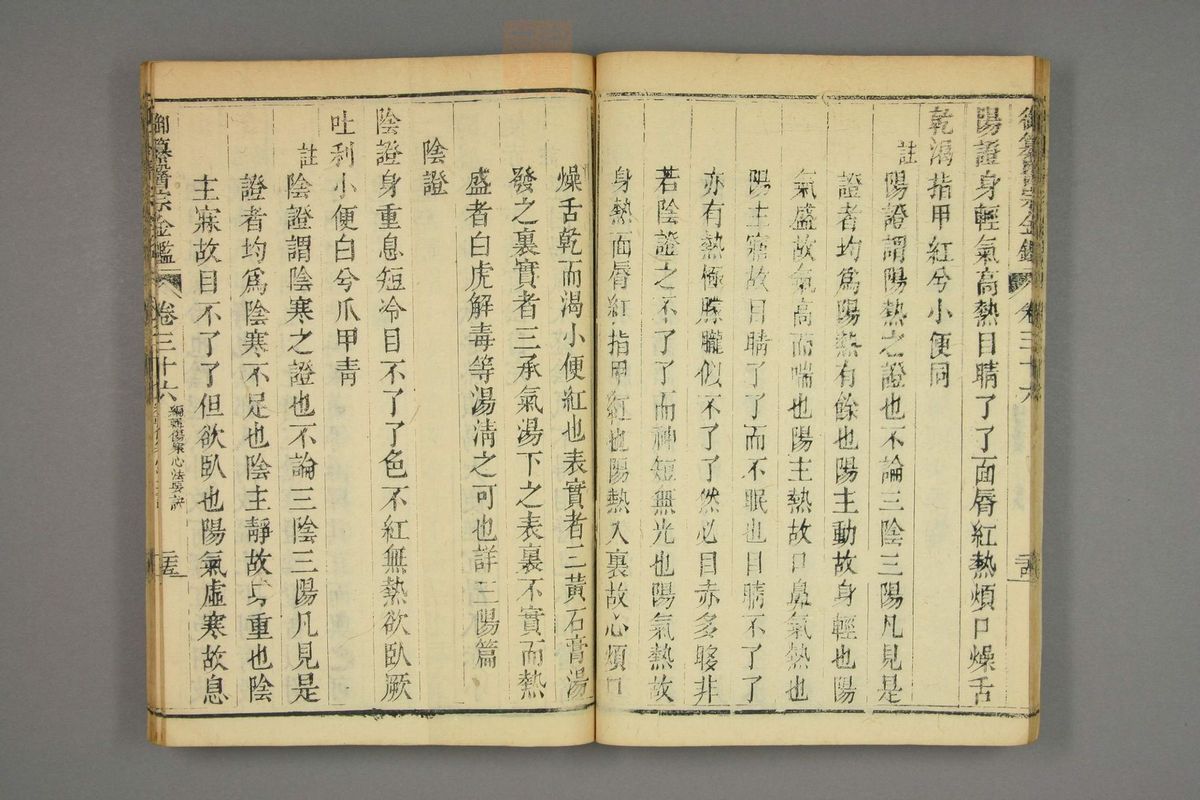 御纂醫宗金鑑
卷三十六
陽證身輕氣高熱目睛了了面唇紅熱煩口燥舌
乾渴指甲紅兮小便同
註
陽證謂陽熱之證也不論三陰三陽凡見是
證者均爲陽熱有餘也陽主動故身輕也陽
氣盛故氣高而喘也陽主熱故口鼻氣熱也
陽主寤故目睛了了而不眠也目睛不了了
亦有熱極朦朧似不了了然必目赤多眵非
若陰證之不了了而神短無光也陽氣熱故
身熱面唇紅指甲紅也陽熱入裏故心煩口
燥舌乾而渴小便紅也表實者三黃石膏湯
發之裏實者三承氣湯下之表裏不實而熱
盛者白虎解毒等湯淸之可也詳三陽篇
陰證
陰證身重息短冷目不了了色不紅無熱欲臥厥
吐利小便白兮爪甲青
註
陰證謂陰寒之證也不論三陰三陽凡見是
證者均爲陰寒不足也陰主靜故身重也陰
主寐故目不了了但欲臥也陽氣虛寒故息
御纂醫宗金鑑
卷三十六
編輯傷寒心法要訣